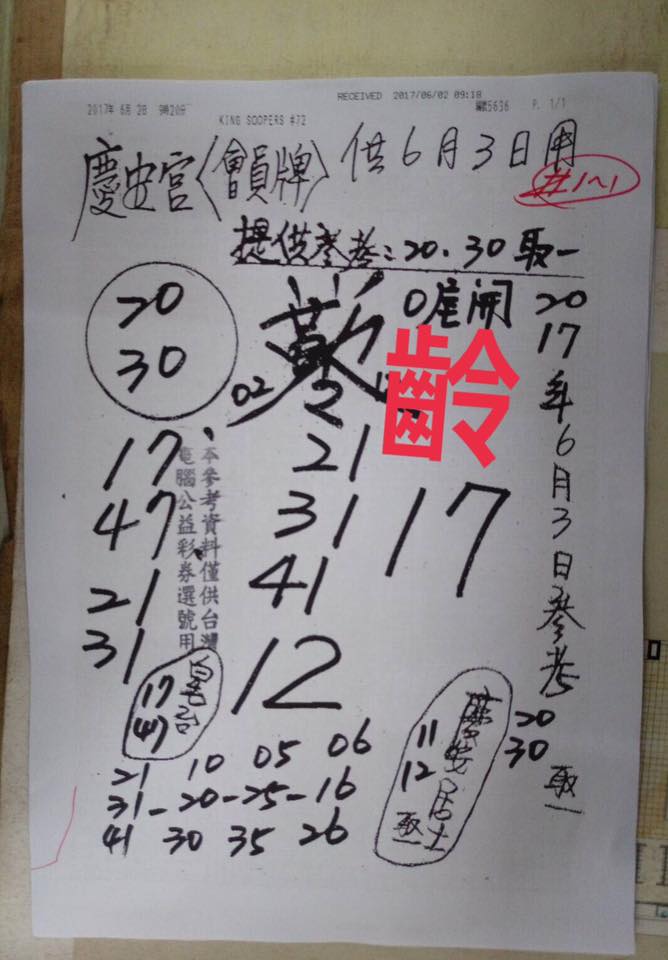 RECEIVED 2017/06/02 09:18
2017年 6月 2日 9時20分
KING SOOPERS #72
5636 P. 1/1
慶安宮〈會員牌〉供6月3日用
#1~1
提供參考:20.30取一
20
30
0尾開
齡
02
17
47
21
31
21
31
41
17
12
本參考資料僅供台灣
電腦公益彩券選號用
2017年6月3日參考
20
30
取一
17
47
11
12
取一
21 10 05 06
31-20-25-16
41 30 35 26